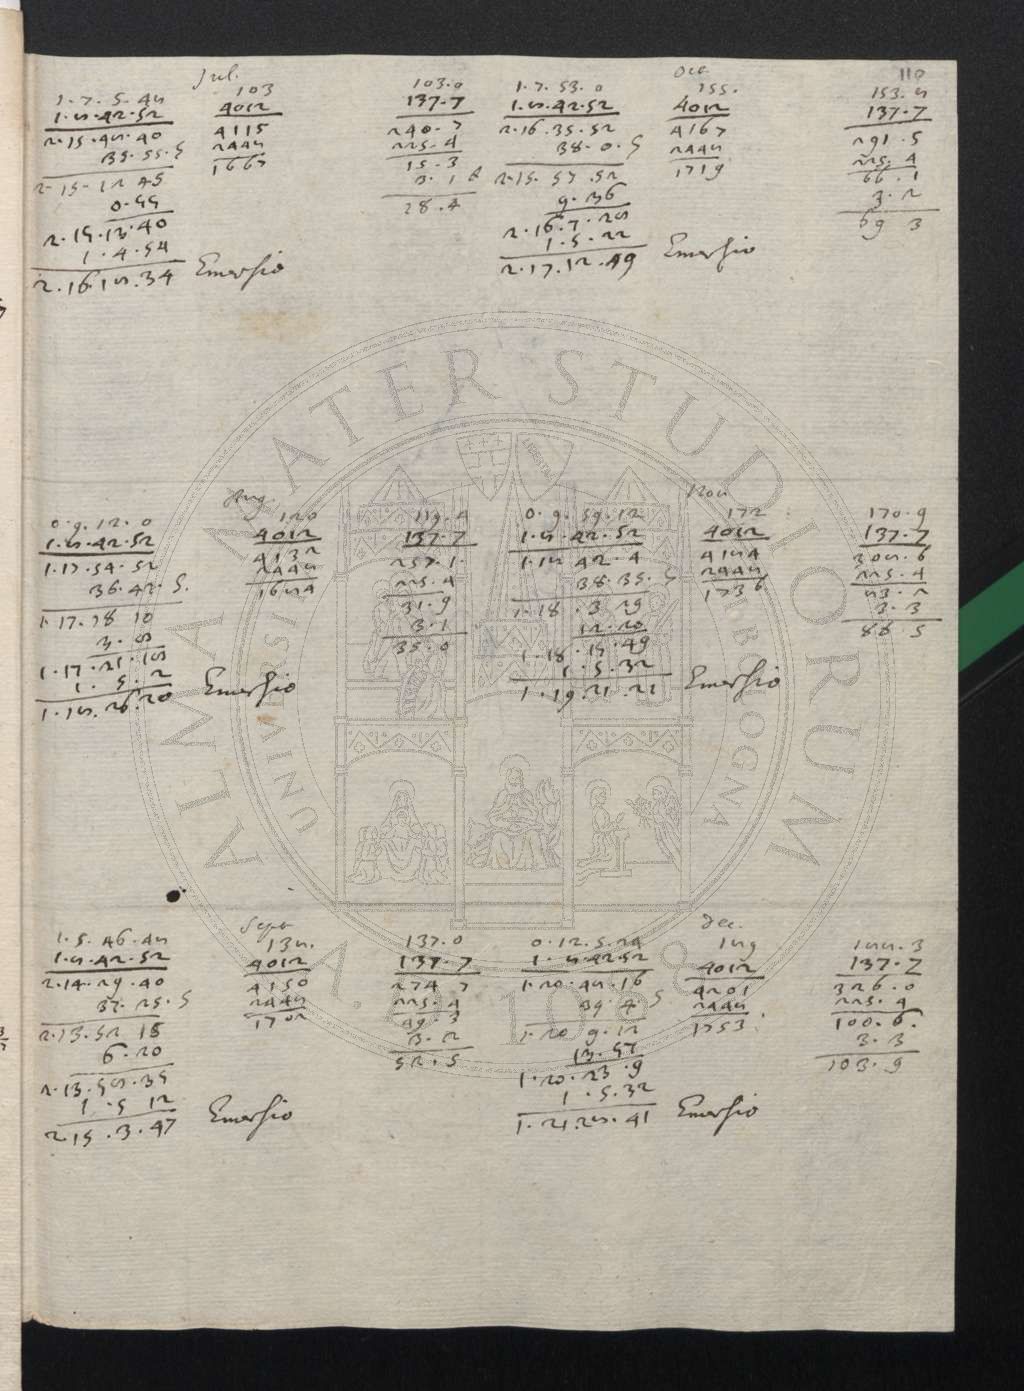 110
Jul.
1.7.5.48
1.8.42.52
2.15.48.40
35.55.S
2.15.12 45
0.55
2.15.13.40
1.4.54
2.16.18.34 Emersio
103
4012
4115
2448
1667
103.0
137.7
240.7
225.4
15.3
3.1
18.4
Oct.
1.7.53.0
1.8.42.52
2.16.35.52
38.0.S
2.15.57.52
9.36
2.16.7.28
1.5.22
2.17.12.49 Emersio
155.
4012
4167
2448
1719
153.8
137.7
291.5
225.4
66.1
3.2
69 3
Aug.
0.9.12.0
1.8.42.52
1.17.54.52
36.42.S.
1.17.18 10
3.8
1.17.21.18
1.5.2
1.18.26.20 Emersio
120
4012
4132
2448
1684
119.4
137.7
257.1.
225.4
31.9
3.1
35.0
Nou
0.9.59.12
1.8.42.52
1.18 42.4
38.35.S
1.18.3 29
12.20
1.18.15.49
1.5.32
1.19.21.21 Emersio
172
4012
4184
2448
1736
170.9
137.7
308.6
225.4
83.2
3.3
86 5
Sept
1.5.46.48
1.8.42.52
2.14.29.40
37.25.S
2.13.52 15
6.20
2.13.58.35
1.5 12
2.15.3.47 Emersio
138.
4012
4150
2448
1702
137.0
137.7
274 7
225.4
49.3
3.2
52.5
Dec.
0.12.5.24
1.8.42.52
1.20.48.16
39.4.S
1.20 9.12
13.57
1.20.23.9
1.5.32
1.21.28.41 Emersio
189
4012
4201
2448
1753.
188.3
137.7
326.0
225.4
100.6.
3.3
103.9
ALMA MATER STUDIORUM
A.D. 1088
UNIVERSITÀ DI BOLOGNA